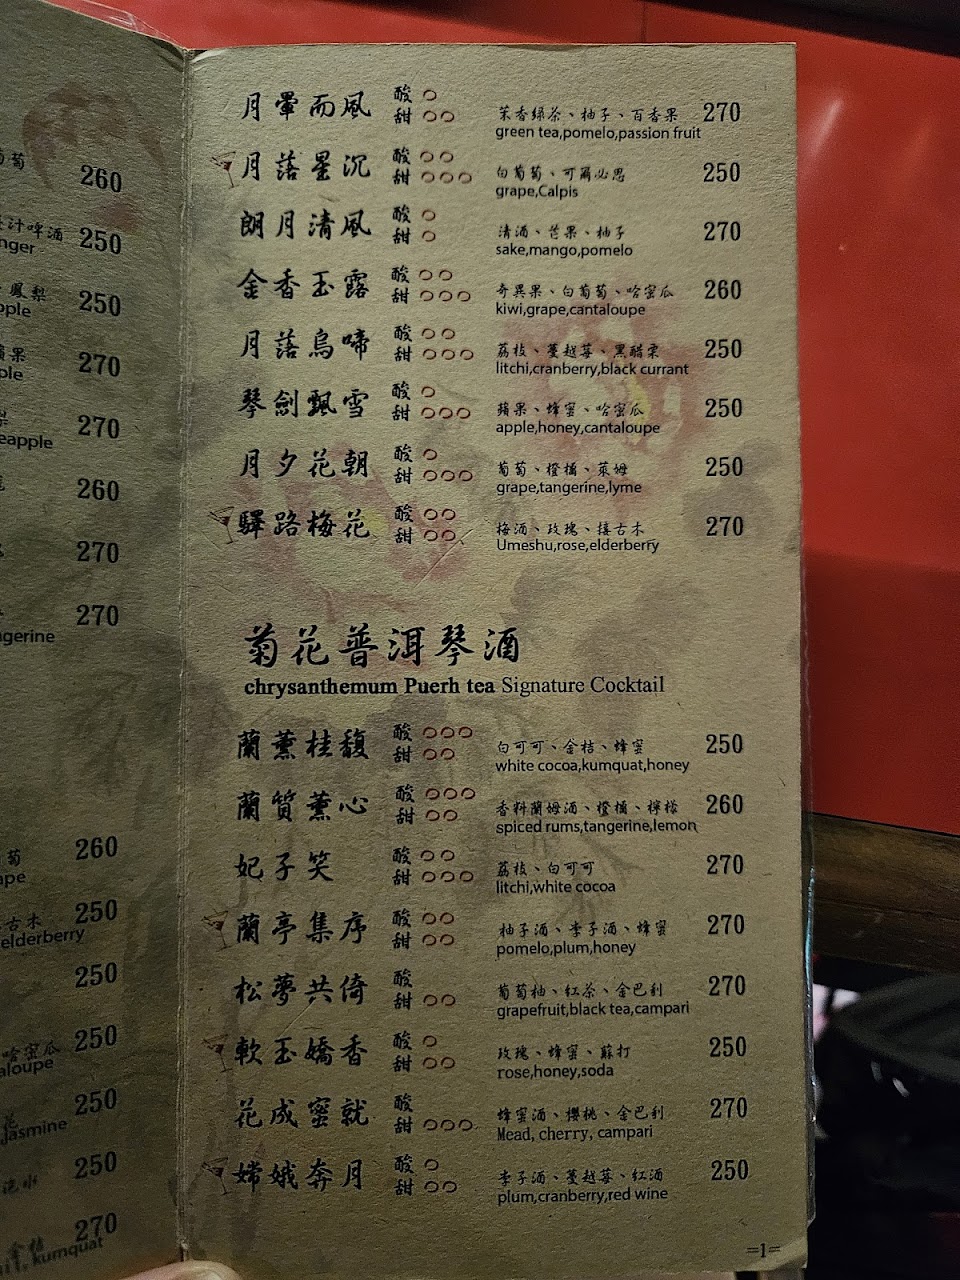 260
250
nger
250
270
270
eapple
260
270
270
gerine
260
250
elderberry
250
250
aloupe
250
Jasmine
250
270
kumquat
月暈而風 酸 ○ 甜 ○○ 茉香綠茶、柚子、百香果 270
green tea,pomelo,passion fruit
月落星沉 酸 ○○ 甜 ○○○ 白葡萄、可爾必思 250
grape,Calpis
朗月清風 酸 ○ 甜 ○ 清酒、芒果、柚子 270
sake,mango,pomelo
金香玉露 酸 ○○ 甜 ○○○ 奇異果、白葡萄、哈密瓜 260
kiwi,grape,cantaloupe
月落烏啼 酸 ○○ 甜 ○○○ 荔枝、蔓越莓、黑醋栗 250
litchi,cranberry,black currant
琴劍飄雪 酸 ○ 甜 ○○○ 蘋果、蜂蜜、哈密瓜 250
apple,honey,cantaloupe
月夕花朝 酸 ○ 甜 ○○○ 葡萄、橙橘、萊姆 250
grape,tangerine,lyme
驛路梅花 酸 ○○ 甜 ○○ 梅酒、玫瑰、接古木 270
Umeshu,rose,elderberry
菊花普洱琴酒
chrysanthemum Puerh tea Signature Cocktail
蘭薰桂馥 酸 ○○○ 甜 ○○ 白可可、金桔、蜂蜜 250
white cocoa,kumquat,honey
蘭質薰心 酸 ○○○ 甜 ○○ 香料蘭姆酒、橙橘、檸檬 260
spiced rums,tangerine,lemon
妃子笑 酸 ○○ 甜 ○○○ 荔枝、白可可 270
litchi,white cocoa
蘭亭集序 酸 ○○ 甜 ○○ 柚子酒、李子酒、蜂蜜 270
pomelo,plum,honey
松夢共倚 酸 甜 ○○ 葡萄柚、紅茶、金巴利 270
grapefruit,black tea,campari
軟玉嬌香 酸 ○ 甜 ○○ 玫瑰、蜂蜜、蘇打 250
rose,honey,soda
花成蜜就 酸 甜 ○○○ 蜂蜜酒、櫻桃、金巴利 270
Mead, cherry, campari
嫦娥奔月 酸 ○ 甜 ○○ 李子酒、蔓越莓、紅酒 250
plum,cranberry,red wine
=1=